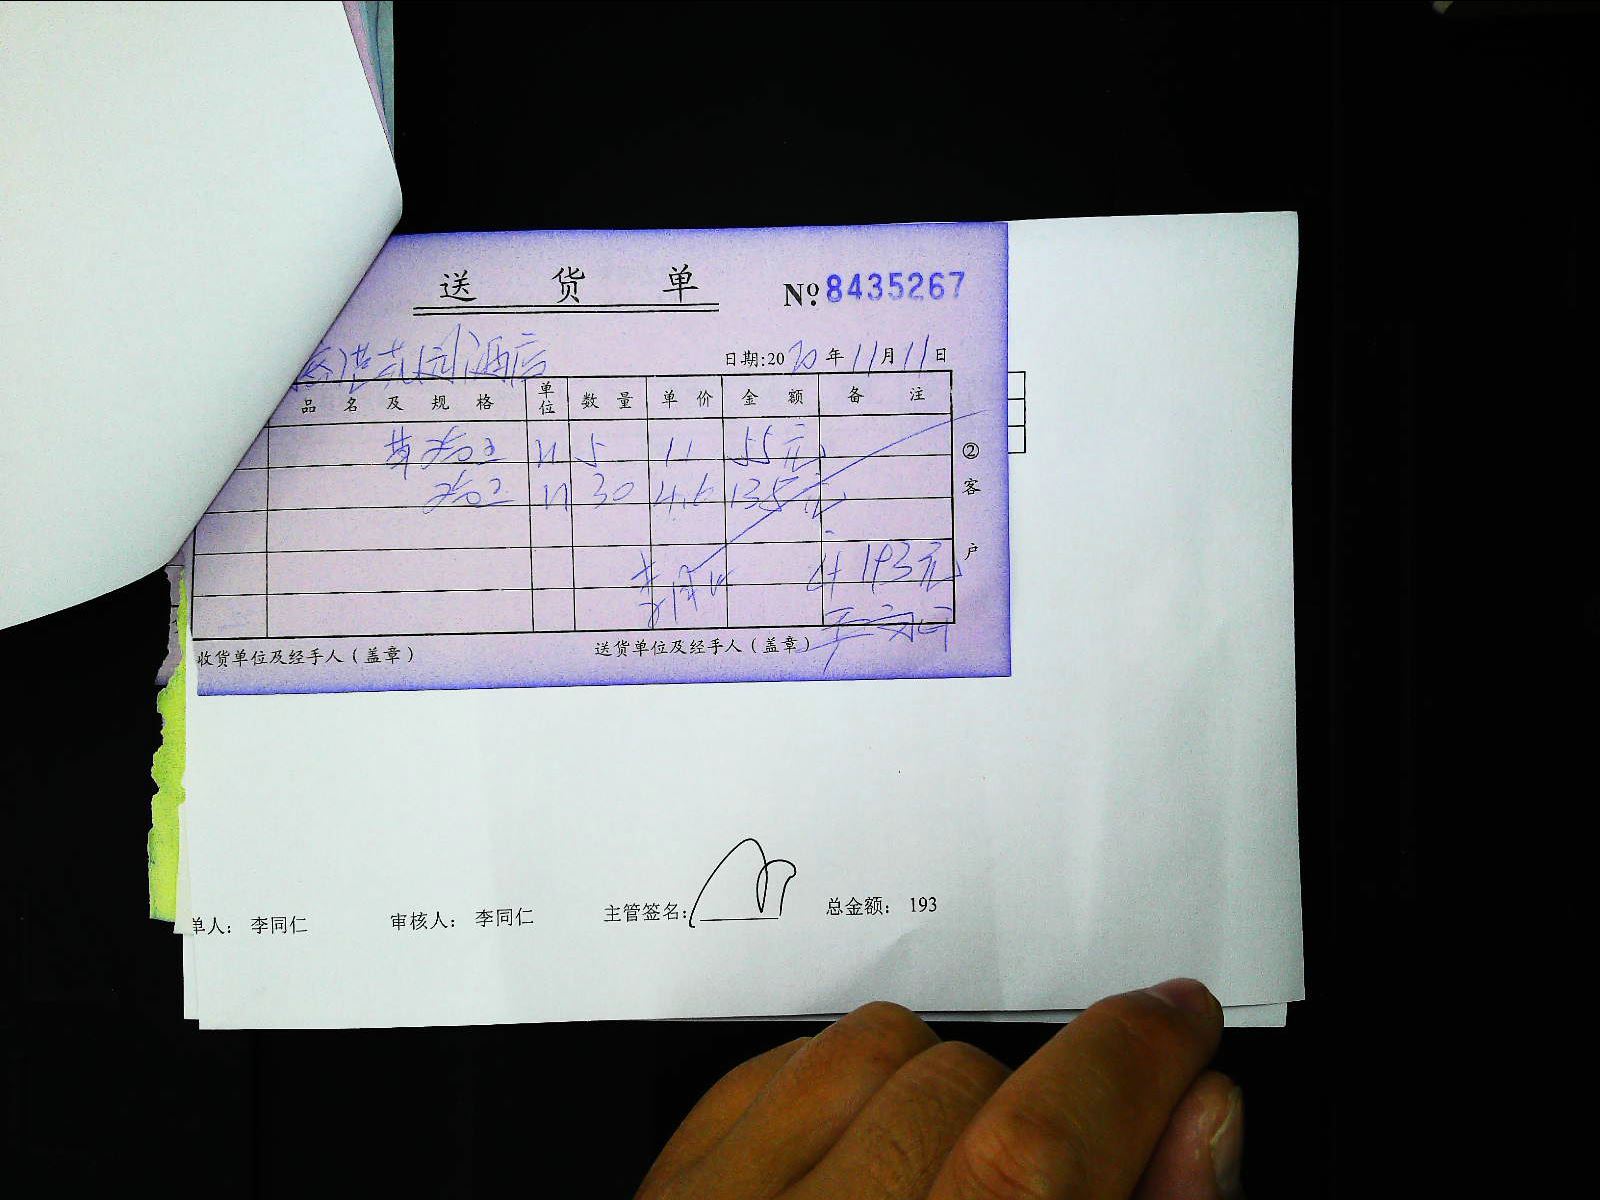 送 货 单 Nº 8435267
花园酒店 日期:2020年11月11日
品名及规格 单位 数量 单价 金额 备注
5 11 55元
30 4.6 135元
193元
收货单位及经手人（盖章） 送货单位及经手人（盖章）
②客户
单人： 李同仁 审核人： 李同仁 主管签名： 总金额： 193